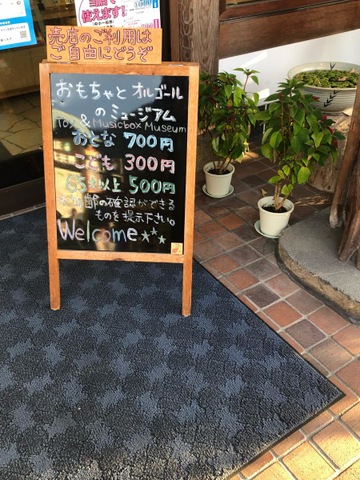 当店で
使えます!
売店のご利用は
ご自由にどうぞ
おもちゃとオルゴール
のミュージアム
Toy & Musicbox Museum
おとな 700円
こども 300円
65才以上 500円
の確認ができる
ものを提示下さい。
Welcome